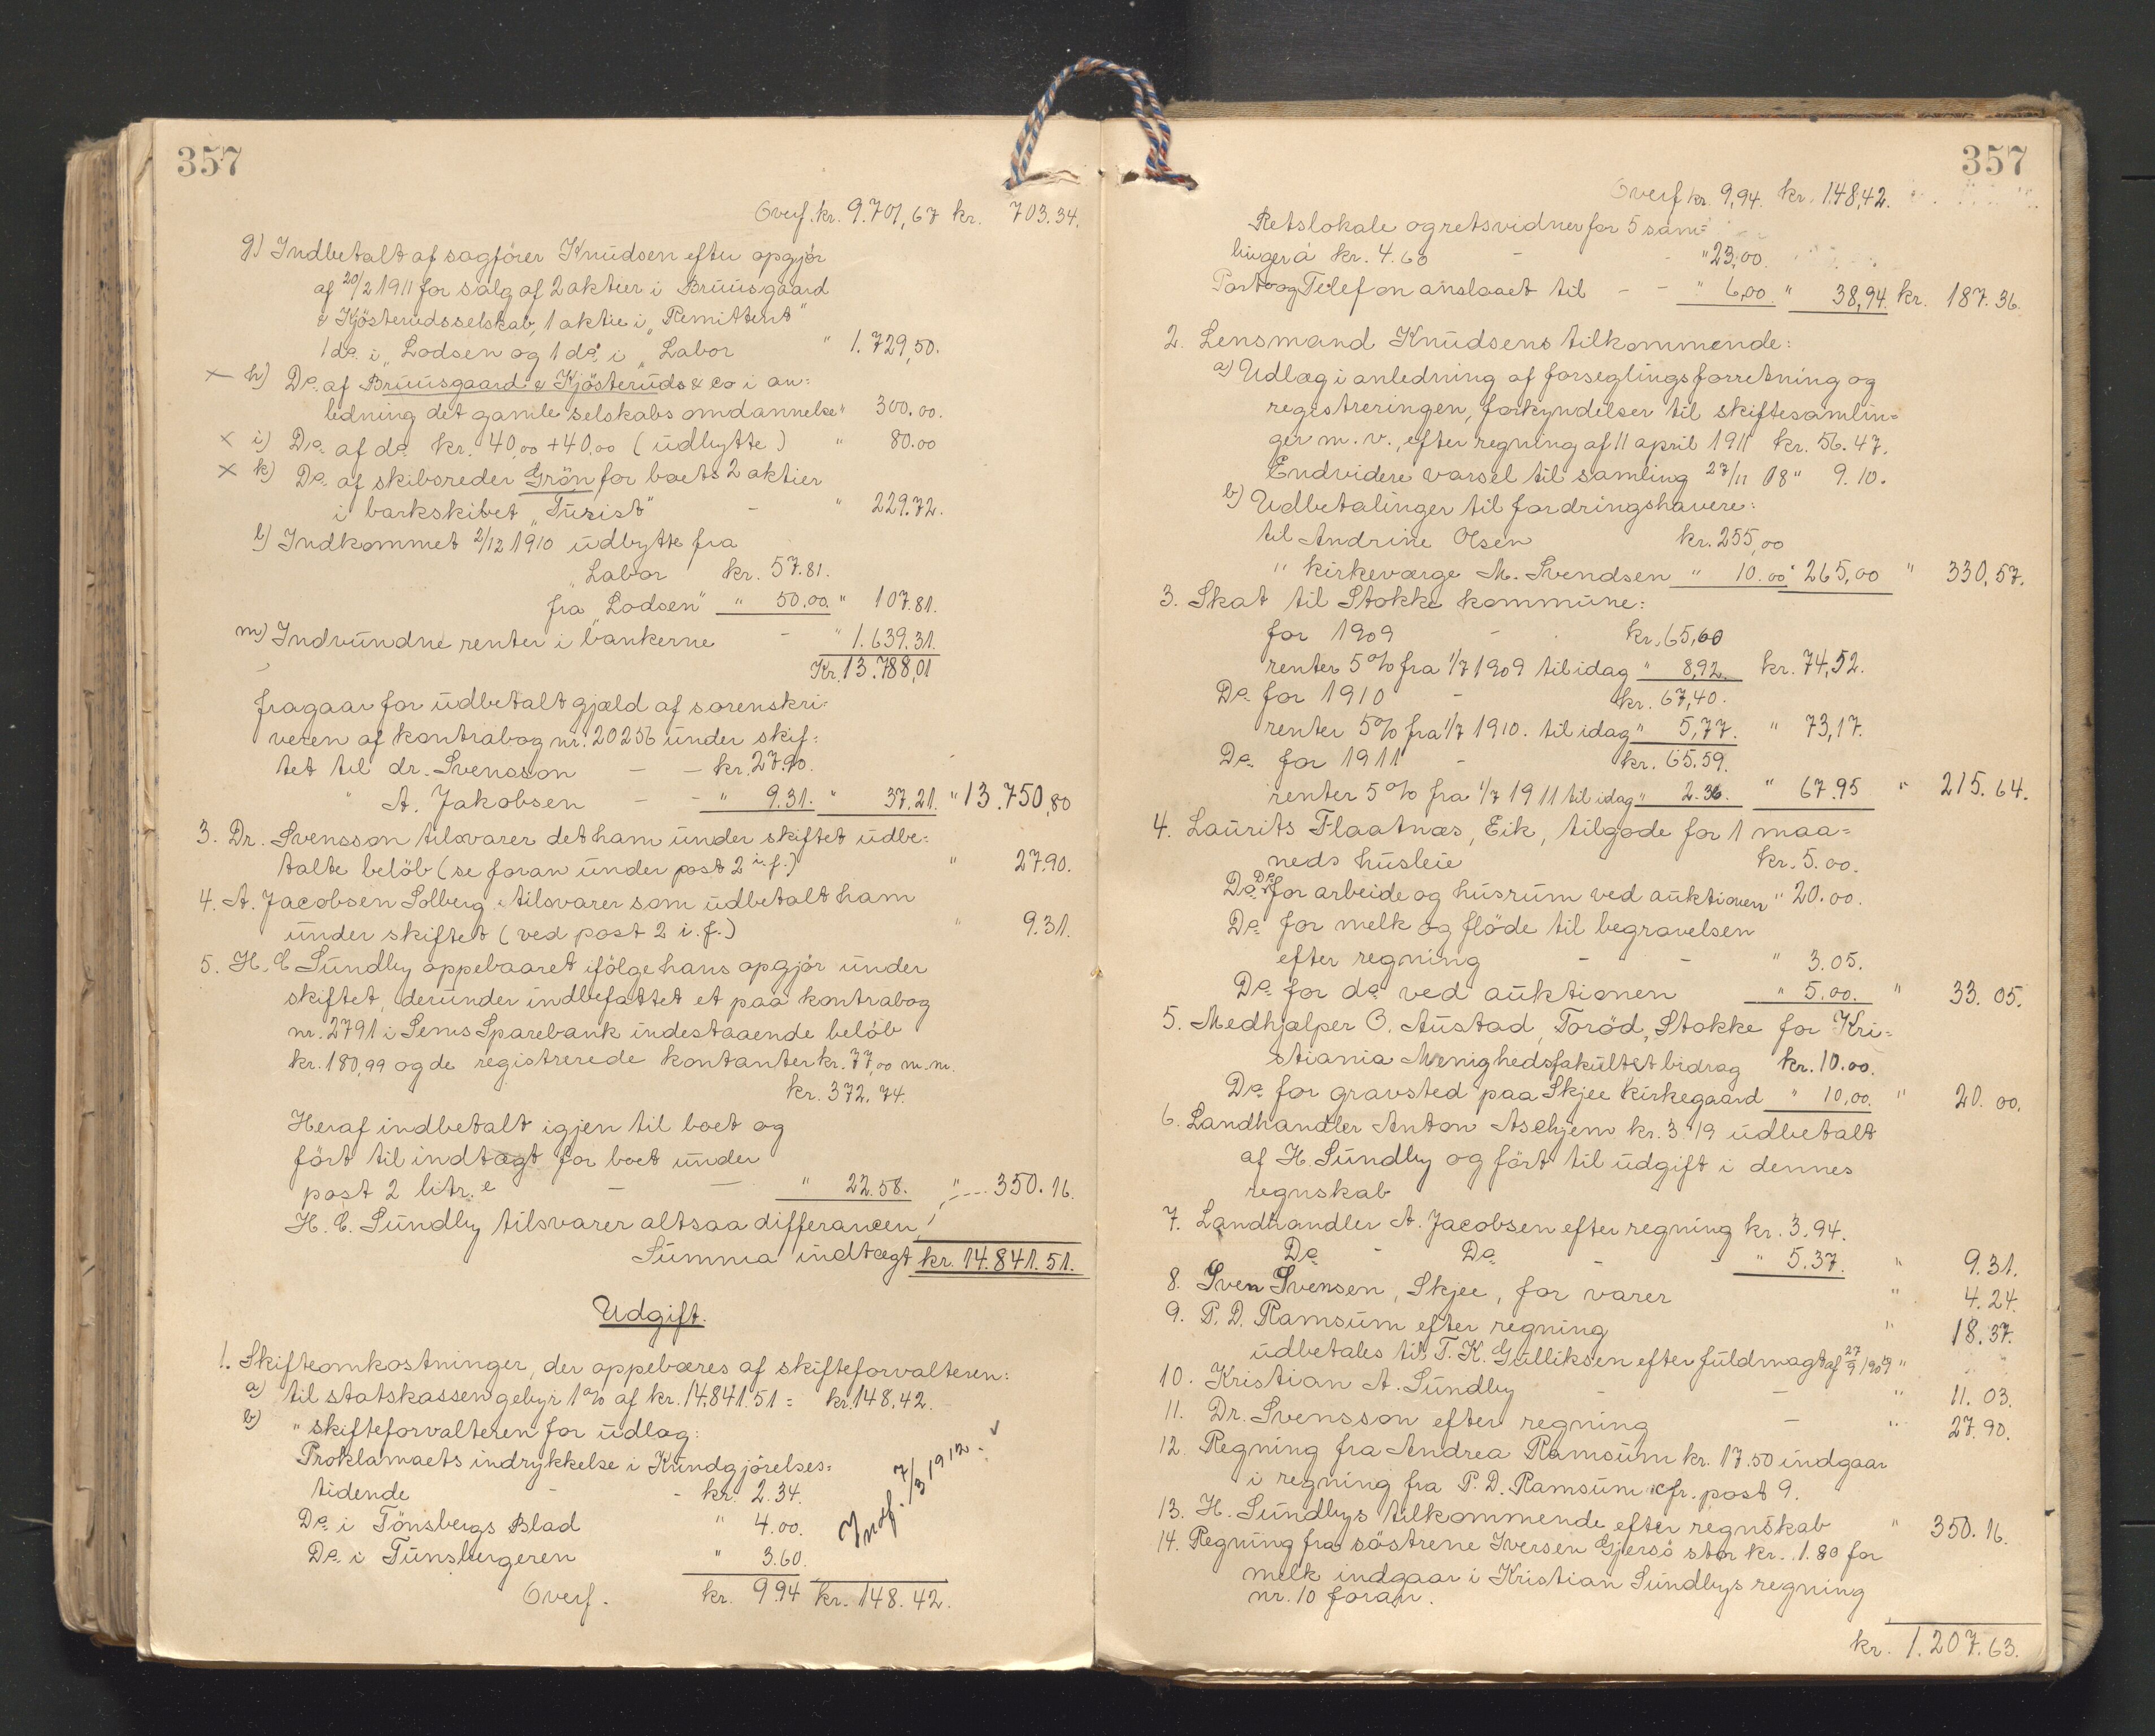 357
Overf. kr. 9.701,67 kr. 703.34.
g) Indbetalt af sagförer Knudsen efter opgjör
af 20/2 1911 for salg af 2 aktier i Bruusgaard
& Kjösteruds selskab, 1 aktie i "Remittent"
1 do. i "Lodsen og 1 do. i "Labor " 1.729,50.
h) Do. af Bruusgaard & Kjösteruds & Co i an=
ledning det gamle selskabs omdannelse " 300.00.
x i) Do. af do. kr. 40,00 + 40,00 (udbytte) " 80.00
x k) Do. af skibsreder Grön for boets 2 aktier
i barkskibet "Turist" - " 229.72.
l) Indkommet 2/12 1910 udbytte fra
"Labor kr. 57.81.
fra "Lodsen" " 50.00. " 107.81.
m) Indvundne renter i bankerne - " 1.639.31.
Kr. 13.788,01
fragaar for udbetalt gjæld af sorenskri=
veren af kontrabog nr. 20256 under skif=
tet til dr. Svensson - - kr. 27.90.
" A. Jakobsen - - " 9.31. " 37.21. " 13.750,80
3. Dr. Svensson tilsvarer det ham under skiftet udbe=
talte belöb (se foran under post 2 i.f.) " 27.90.
4. A. Jacobsen Solberg tilsvarer som udbetalt ham
under skiftet (ved post 2 i.f.) " 9.31.
5. H. C Sundby oppebaaret ifölge hans opgjör under
skiftet, derunder indbefattet et paa kontrabog
nr. 2791 i Sems Sparebank indestaaende belöb
kr. 180,99 og de registrerede kontanter kr. 77,00 m.m.
kr. 372.74.
Heraf indbetalt igjen til boet og
fört til indtægt for boet under
post 2 litr. e - - " 22.58. " 350.16.
H. C. Sundby tilsvarer altsaa differancen
Summa indtægt kr. 14.841.51.
Udgift.
1. Skifteomkostninger, der oppebæres af skifteforvalteren:
a) til statskassen gebyr 1% af kr. 14.841.51 = kr. 148.42.
b) " skifteforvalteren for udlæg:
Proklamaets indrykkelse i Kundgjörelses=
tidende - - kr. 2.34.
Do. i Tönsbergs Blad " 4.00.
Indf. 7/3 1912.
Do. i Tunsbergeren " 3.60.
Overf. kr. 9.94 kr. 148.42.
357
Overf kr. 9,94. kr. 148,42.
Retslokale og retsvidner for 5 sam=
linger á kr. 4.60 - - " 23,00.
Porto og Telefon anslaaet til - - " 6,00. " 38,94. kr. 187.36.
2. Lensmand Knudsens tilkommende:
a) Udlæg i anledning af forseglingsforretning og
registreringen, forkyndelser til skiftesamlin=
ger m.v., efter regning af 11 april 1911 kr. 56.47.
Endvidere varsel til samling 27/11 08 " 9.10.
b) Udbetalinger til fordringshavere:
til Andrine Olsen kr. 255,00
" kirkeværge M. Svendsen " 10.00 " 265,00 " 330,57.
3. Skat til Stokke kommune:
for 1909 - kr. 65,60
renter 5% fra 1/7 1909 til idag " 8,92. kr. 74,52.
Do. for 1910 - kr. 67,40.
renter 5% fra 1/7 1910. til idag " 5,77. " 73,17.
Do. for 1911 - kr. 65.59.
renter 5% fra 1/7 1911 til idag " 2.36. " 67.95 " 215.64.
4. Laurits Flaatnæs, Eik, tilgode for 1 maa=
neds husleie kr. 5.00.
Do. Do. for arbeide og husrum ved auktionen " 20.00.
Do. for melk og flöde til begravelsen
efter regning - - " 3.05.
Do. for do. ved auktionen " 5.00. " 33.05.
5. Medhjælper O. Austad, Toröd, Stokke for Kri=
stiania Menighedsfakultet bidrag kr. 10.00.
Do. for gravsted paa Skjee Kirkegaard " 10,00. " 20.00.
6. Landhandler Anton Aschjem kr. 3.19 udbetalt
af H. Sundby og fört til udgift i dennes
regnskab
7. Landhandler A. Jacobsen efter regning kr. 3.94.
Do. - Do. - " 5.37. " 9.31.
8. Sven Svensen, Skjee, for varer " 4.24.
9. P. D. Ramsum efter regning " 18.37.
udbetales til T. K. Gulliksen efter fuldmagt af 27/9 1909 "
10. Kristian A. Sundby - - " 11.03.
11. Dr. Svensson efter regning - " 27.90.
12. Regning fra Andrea Ramsum kr. 17.50 indgaar
i regning fra P. D. Ramsum cfr. post 9.
13. H. Sundbys tilkommende efter regnskab " 350.16.
14. Regning fra söstrene Iversen Gjersö stor kr. 1.80 for
melk indgaar i Kristian Sundbys regning
nr. 10 foran.
kr. 1.207.63.